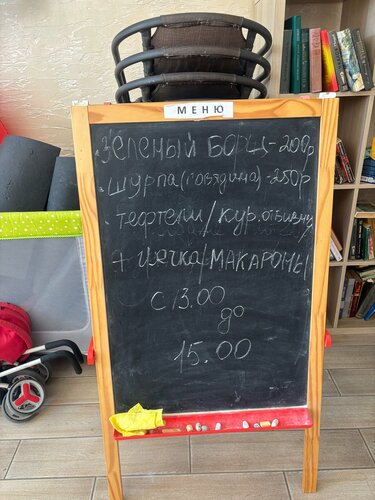 МЕНЮ
• ЗЕЛЕНЫЙ БОРЩ-200р
• ШУРПА (говядина)-250р
• ТЕФТЕЛИ/кур.отбивну
+ гречка/МАКАРОНЫ
с 13.00
до
15.00